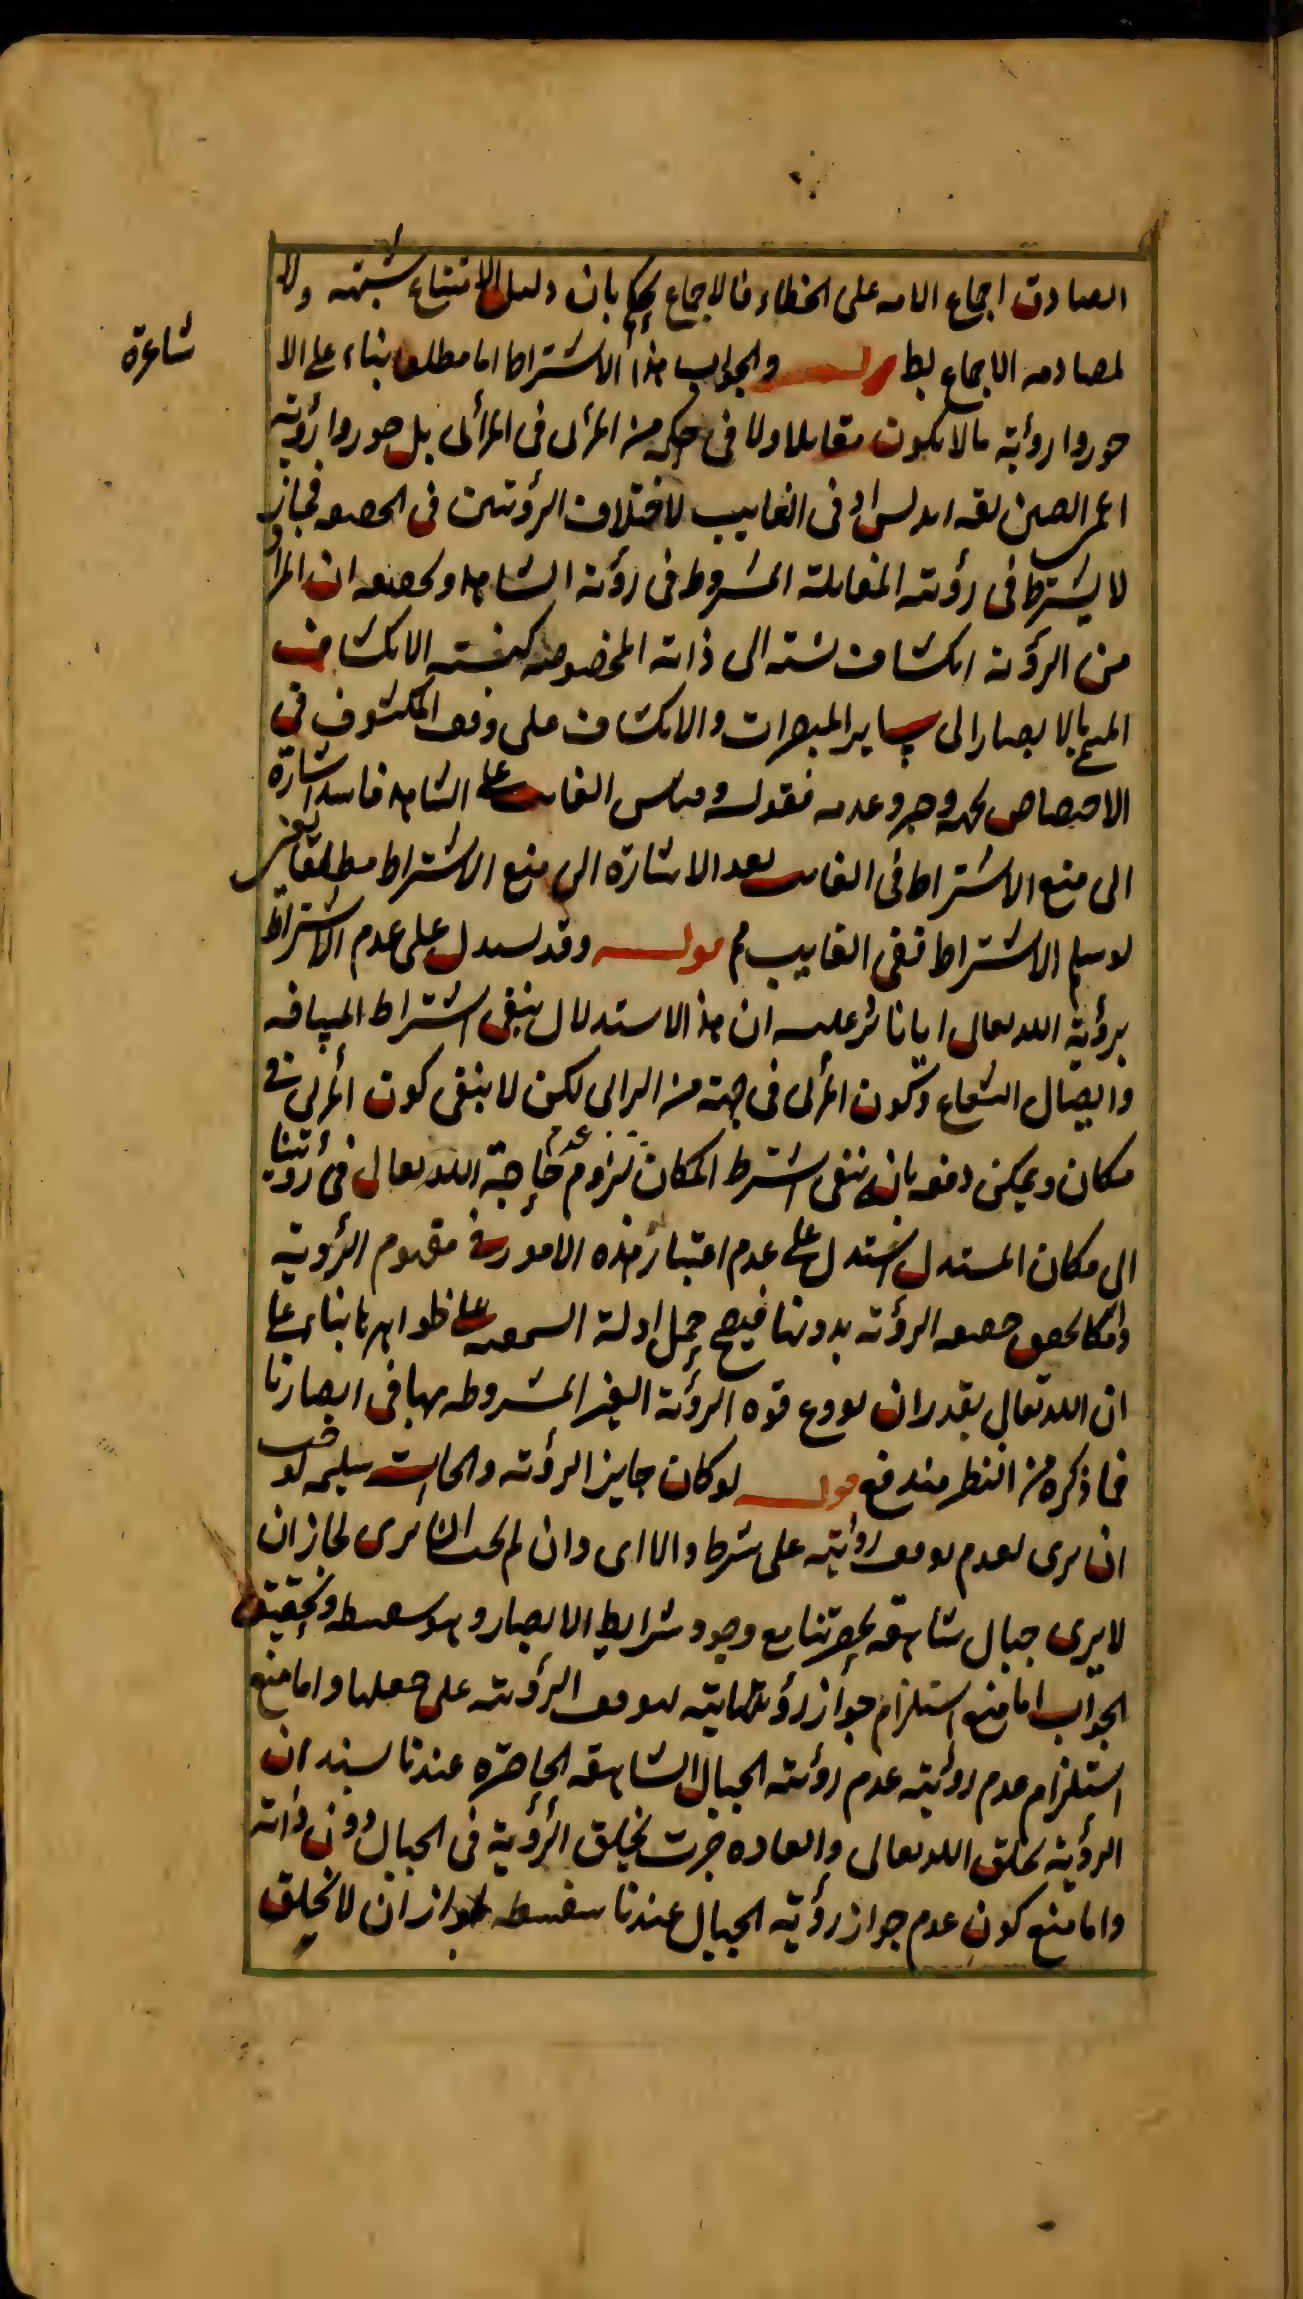 الصادق اجماع الامه على الخطاء فالاجماع يحكم بان دليل الامتناع شبهة ولا
لمصادمه الاجماع قوله والجواب هذا الاشتراط اما مطلقا بناء على الا
شاعرة
جوزوا رؤية مالا يكون مقابلا ولا في حكمه من المرئى فى المرائى بل جوزوا رؤية
اعمى الصين بقه اندلس او فى الغايب لاختلاف الرؤيتين فى الحقيقه فجاز
لا يشترط فى رؤيته المقابلة المشروط فى رؤية الشاهد وتحقيقه ان المراد
من الرؤية انكشاف نسبته الى ذاته المخصوصه كنسبته الانكشاف
المسمى بالابصار الى ساير المبصرات والانكشاف على وفق المكشوف فى
الاختصاص بجهة وحيز وعدمه فقوله وقياس الغايب على الشاهد فاسد اشارة
الى منع الاشتراط فى الغايب بعد الاشارة الى منع الاشتراط مطلقا يعنى
لو سلم الاشتراط ففى الغايب مم قوله وقد يستدل على عدم الاشتراط
برؤية الله تعالى ايانا عليه ان هذا الاستدلال ينفى اشتراط المسافه
واتصال الشعاع وكون المرئى فى جهة من الرائى لكن لا ينفى كون المرئى فى
مكان ويمكن دفعه بانه ينفى اشترط المكان لزوم عدم حاجة الله تعالى فى رؤيتنا
الى مكان المستدل استدل على عدم اعتبار هذه الامور فى مفهوم الرؤية
وامكا تحقق حقيقه الرؤية بدونها فيصح حمل ادلة السمعيه على ظواهرها بناء على
ان الله تعالى يقدر ان يودع قوه الرؤية الغير المشروطه بها فى ابصارنا
فما ذكره من النظر مندفع قوله لو كان جايز الرؤية والحاسة سليمه لوجب
ان يرى لعدم توقف رؤيته على شرط والا اى وان لم يجب ان يرى لجاز ان
لا يرى جبال شاهقه بحضرتنا مع وجود شرايط الابصار وهو سفسطه وتحقيق
الجواب اما منع استلزام جواز رؤيته لتوقف الرؤية على خلقها واما منع
استلزام عدم رؤيته عدم رؤية الجبال الشاهقه الحاضره عندنا بسند ان
الرؤية بخلق الله تعالى والعاده جرت بخلق الرؤية فى الجبال دون ذاته
واما منع كون عدم جواز رؤية الجبال عندنا سفسطه لجواز ان لا يخلق